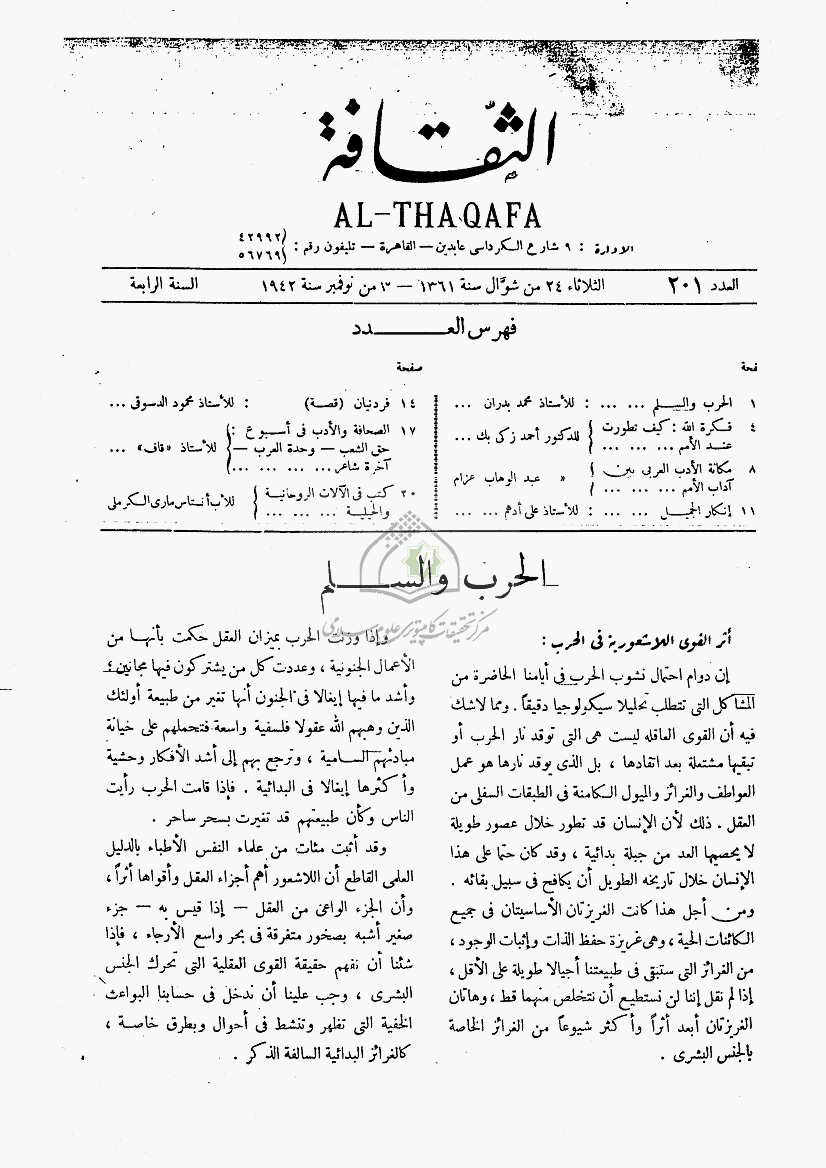 الثقافة
AL-THAQAFA
الادارة : ٩ شارع الكرداسى عابدين — القاهرة — تليفون رقم : (٤٢٩٩٢ (٥٦٧٦٩
العدد ٢٠١
الثلاثاء ٢٤ من شوّال سنة ١٣٦١ — ٣ من نوفمبر سنة ١٩٤٢
السنة الرابعة
فهرس العـــدد
فحة
١ الحرب والسلم ... ... : للأستاذ محمد بدران ...
٤ فكرة الله : كيف تطورت
عند الأمم ... ... ... } للدكتور أحمد زكى بك ...
٨ مكانة الأدب العربى بين
آداب الأمم ... ... ... } « عبد الوهاب عزام
١١ إنكار الجميل ... ... : للأستاذ على أدهم ... ...
صفحة
١٤ فردنيان (قصة) : للأستاذ محمود الدسوقى ...
١٧ الصحافة والأدب فى أسبوع :
حق الشعب — وحدة العرب —
آخرة شاعر ... ... ... ... } للأستاذ «قاف» ...
٢٠ كتب فى الآلات الروحانية
والحيلية ... ... ... } للأب أنستاس مارى الكرملى
الحرب والســـلم
مركز تحقيقات كامپيوتري علوم اسلامي
أثر القوى اللاشعورية فى الحرب :
إن دوام احتمال نشوب الحرب فى أيامنا الحاضرة من
المشاكل التى تتطلب تحليلا سيكولوجيا دقيقاً . ومما لاشك
فيه أن القوى العاقلة ليست هى التى توقد نار الحرب أو
تبقيها مشتعلة بعد اتقادها ، بل الذى يوقد نارها هو عمل
العواطف والغرائز والميول الكامنة فى الطبقات السفلى من
العقل . ذلك لأن الإنسان قد تطور خلال عصور طويلة
لا يحصيها العد من جبلة بدائية ، وقد كان حتما على هذا
الإنسان خلال تاريخه الطويل أن يكافح فى سبيل بقائه .
ومن أجل هذا كانت الغريزتان الأساسيتان فى جميع
الكائنات الحية ، وهى غريزة حفظ الذات وإثبات الوجود ،
من الغرائز التى ستبقى فى طبيعتنا أجيالا طويلة على الأقل ،
إذا لم نقل إننا لن نستطيع أن نتخلص منهما قط ، وهاتان
الغريزتان أبعد أثراً وأكثر شيوعاً من الغرائز الخاصة
بالجنس البشرى .
وإذا وزنت الحرب بميزان العقل حكمت بأنها من
الأعمال الجنونية ، وعددت كل من يشتركون فيها مجانين .
وأشد ما فيها إيغالا فى الجنون أنها تغير من طبيعة أولئك
الذين وهبهم الله عقولا فلسفية واسعة فتحملهم على خيانة
مبادئهم السامية ، وترجع بهم إلى أشد الأفكار وحشية
وأكثرها إيغالا فى البدائية . فإذا قامت الحرب رأيت
الناس وكأن طبيعتهم قد تغيرت بسحر ساحر .
وقد أثبت مئات من علماء النفس الأطباء بالدليل
العلمى القاطع أن اللاشعور أهم أجزاء العقل وأقواها أثراً ،
وأن الجزء الواعى من العقل — إذا قيس به — جزء
صغير أشبه بصخور متفرقة فى بحر واسع الأرجاء ، فإذا
شئنا أن نفهم حقيقة القوى العقلية التى تحرك الجنس
البشرى ، وجب علينا أن ندخل فى حسابنا البواعث
الخفية التى تظهر وتنشط فى أحوال وبطرق خاصة ،
كالغرائز البدائية السالفة الذكر .